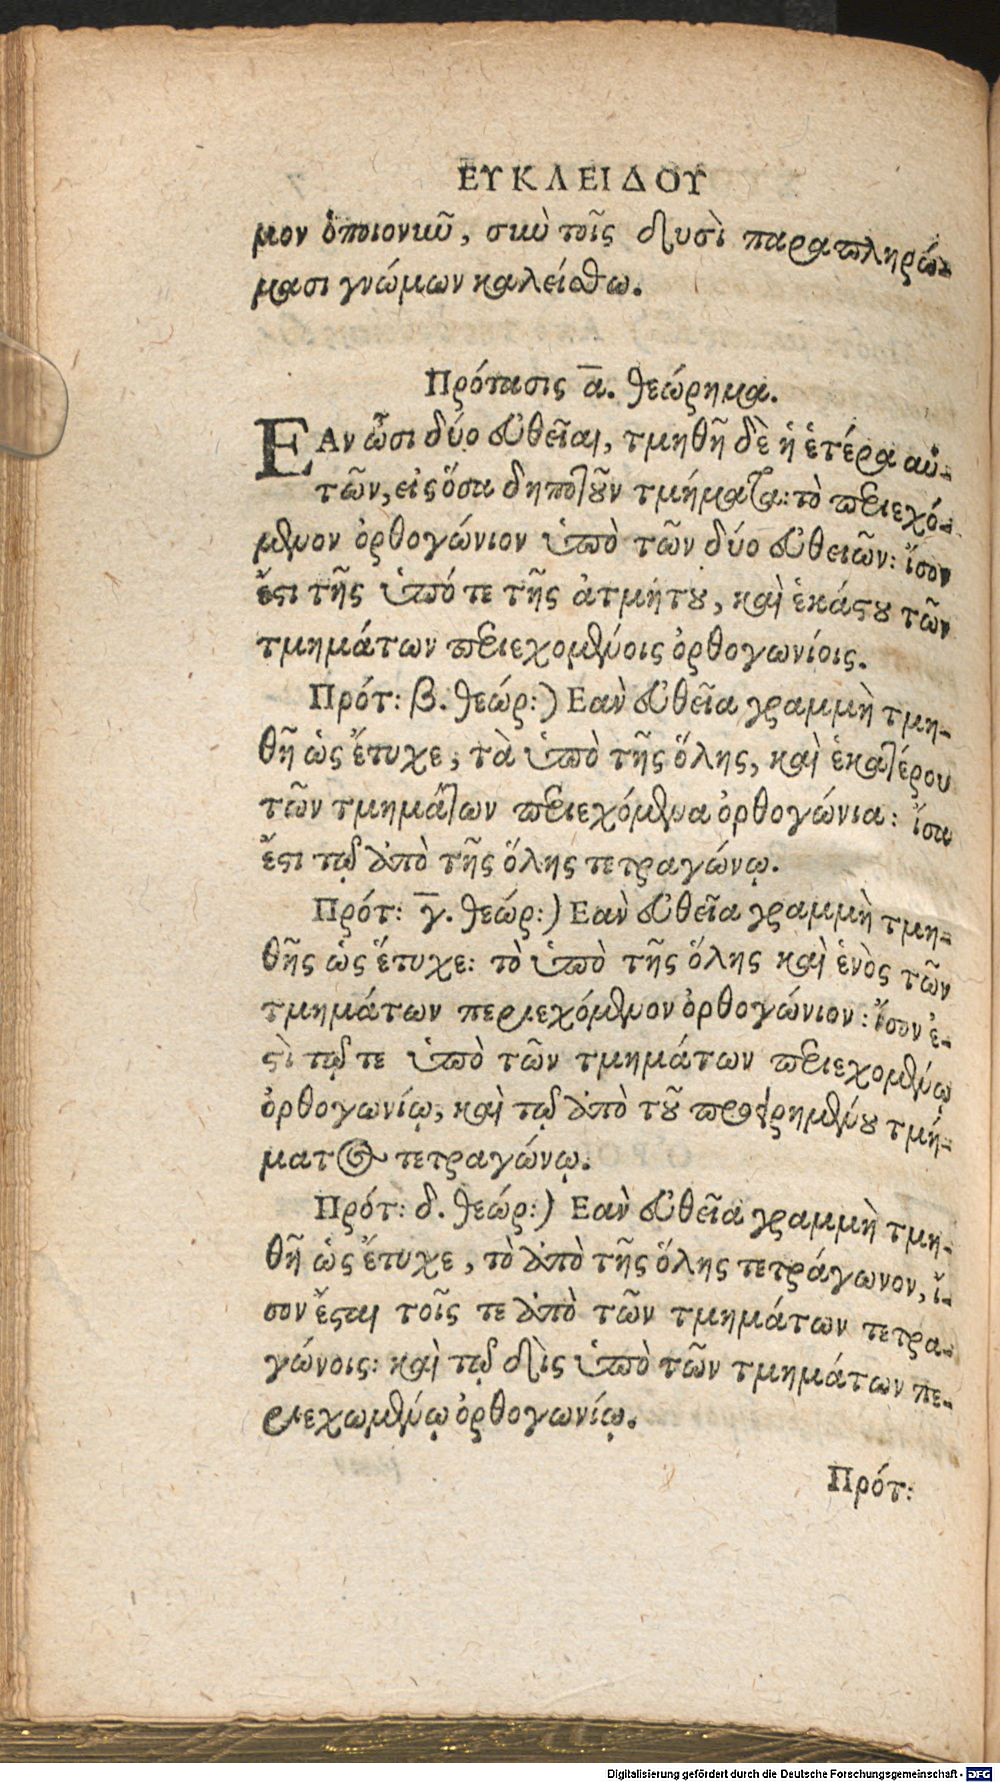 ΕΥΚΛΕΙΔΟΥ
μον ὁποιονκοῦ, σὺν τοῖς δυσὶ παραπληρώ-
μασι γνώμων καλείσθω.
Πρότασις α. θεώρημα.
ΕΑν ὦσι δύο εὐθεῖαι, τμηθῆ δὲ ἡ ἑτέρα αὐ-
τῶν, εἰς ὅσα δηποτοῦν τμήματα: τὸ περιεχό-
μενον ὀρθογώνιον ὑπὸ τῶν δύο εὐθειῶν: ἴσον
ἔστι τῆς ὑπό τε τῆς ἀτμήτου, καὶ ἑκάστου τῶν
τμημάτων περιεχομένοις ὀρθογωνίοις.
Πρότ: β. θεώρ:) Εαν εὐθεῖα γραμμὴ τμη-
θῆ ὡς ἔτυχε, τὰ ὑπὸ τῆς ὅλης, καὶ ἑκατέρου
τῶν τμημάτων περιεχόμενα ὀρθογώνια: ἴσα
ἔστι τῷ ἀπὸ τῆς ὅλης τετραγώνῳ.
Πρότ: γ. θεώρ:) Εαν εὐθεῖα γραμμὴ τμη-
θῆς ὡς ἔτυχε: τὸ ὑπὸ τῆς ὅλης καὶ ἑνὸς τῶν
τμημάτων περιεχόμενον ὀρθογώνιον: ἴσον ἐ-
στὶ τῷ τε ὑπὸ τῶν τμημάτων περιεχομένῳ
ὀρθογωνίῳ, καὶ τῷ ἀπὸ τοῦ προειρημένου τμή-
ματος τετραγώνῳ.
Πρότ: δ. θεώρ:) Εαν εὐθεῖα γραμμὴ τμη-
θῆ ὡς ἔτυχε, τὸ ἀπὸ τῆς ὅλης τετράγωνον, ἴ-
σον ἔσται τοῖς τε ἀπὸ τῶν τμημάτων τετρα-
γώνοις: καὶ τῷ δὶς ὑπὸ τῶν τμημάτων πε-
ριεχωμένῳ ὀρθογωνίῳ.
Πρότ:
Digitalisierung gefördert durch die Deutsche Forschungsgemeinschaft - DFG